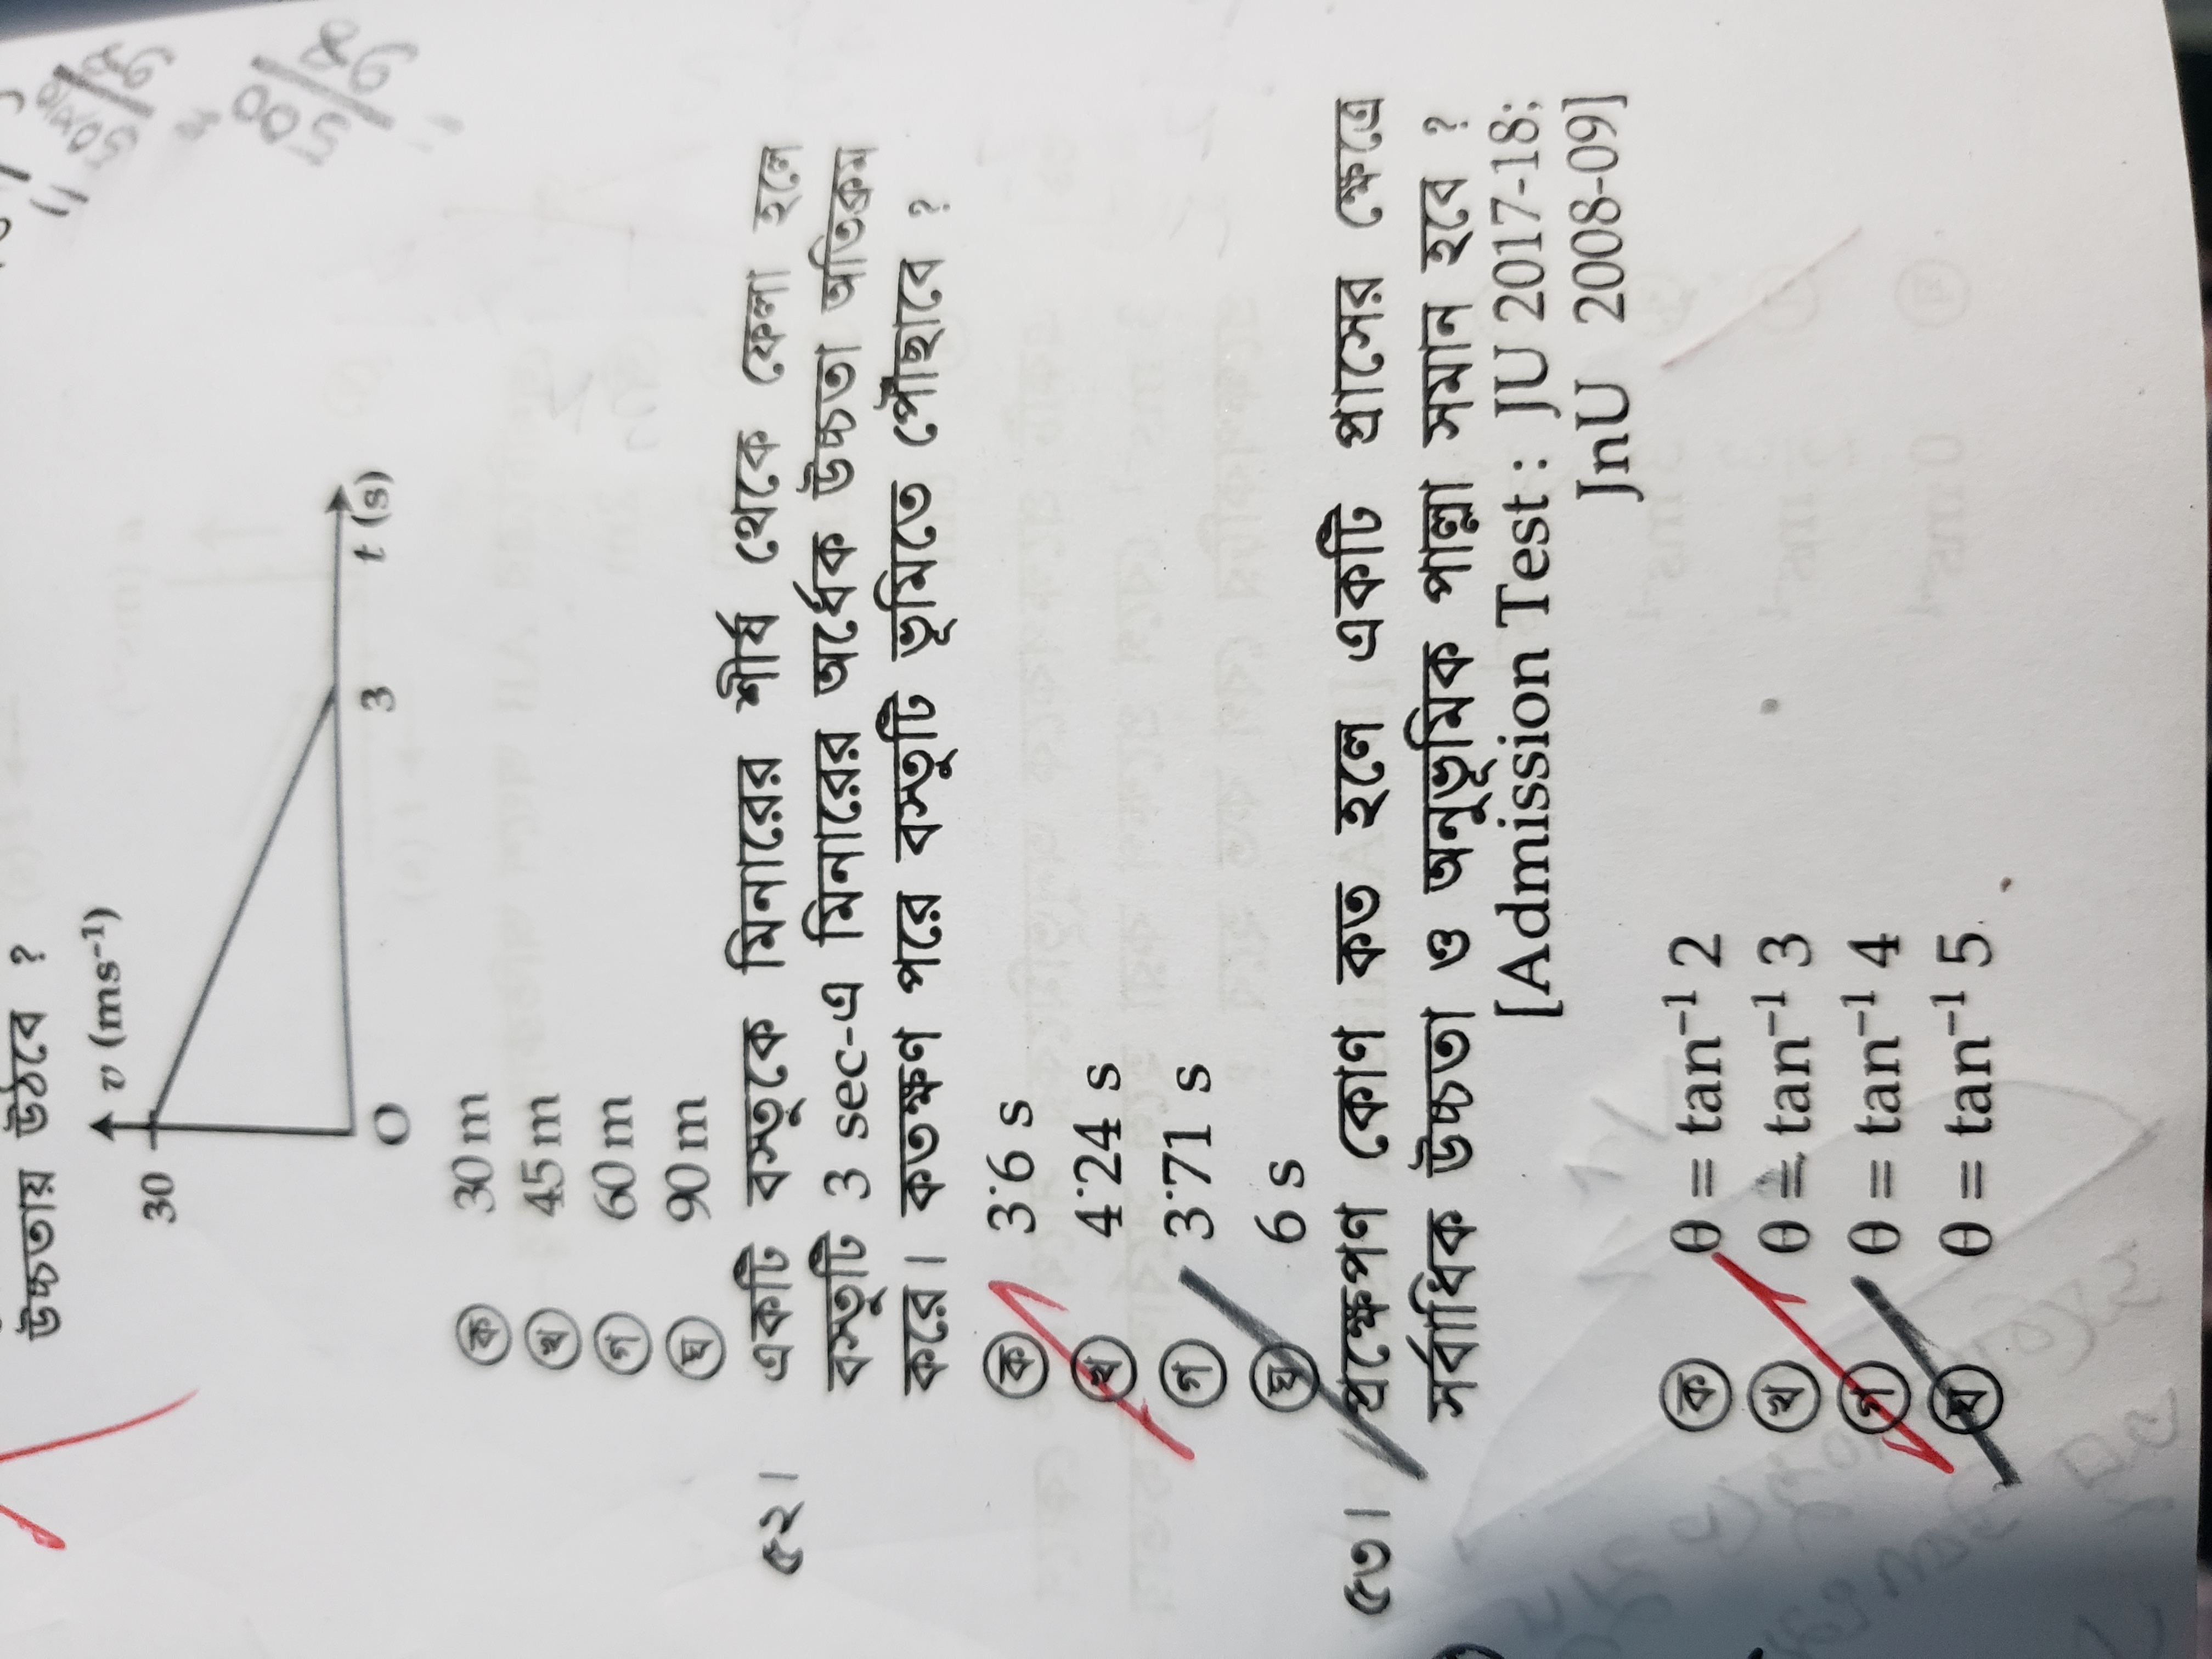 উচ্চতায় উঠবে ?
v (ms⁻¹)
30
O
3
t (s)
ক 30 m
খ 45 m
গ 60 m
ঘ 90 m
৫২। একটি বস্তুকে মিনারের শীর্ষ থেকে ফেলা হলে
বস্তুটি 3 sec-এ মিনারের অর্ধেক উচ্চতা অতিক্রম
করে। কতক্ষণ পরে বস্তুটি ভূমিতে পৌঁছাবে ?
ক 3·6 s
খ 4·24 s
গ 3·71 s
ঘ 6 s
৫৩। প্রক্ষেপণ কোণ কত হলে একটি প্রাসের ক্ষেত্রে
সর্বাধিক উচ্চতা ও অনুভূমিক পাল্লা সমান হবে ?
[Admission Test : JU 2017-18;
JnU 2008-09]
ক θ = tan⁻¹ 2
খ θ = tan⁻¹ 3
গ θ = tan⁻¹ 4
ঘ θ = tan⁻¹ 5